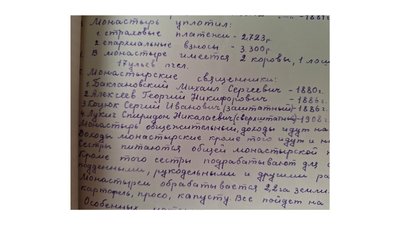 Монастырь уплотил:
1. страховые платежи - 2723 р
2. епархиальные взносы - 3.300 р.
В монастыре имеется 2 коровы, 1 лош
17 ульев пчел.
Монастырские священники:
1. Баклановский Михаил Сергеевич - 1880 г.
2. Алексеев Георгий Никифорович - 1886 г.
3. Коцюк Сергий Иванович (заштатный) - 1886 г.
4. Лукие Спиридон Николаевич (сверштатный) - 1908 г
Монастырь общежительный, доходы идут на
Доходы монастырские кроме того идут и на
Сестры питаются общей монастырской
Кроме того сестры подрабатывают для
поденными, рукодельными и другими ра
Монастырем обрабатывается 2,2 га земли
картофель, просо, капусту Все пойдет на
Особенных